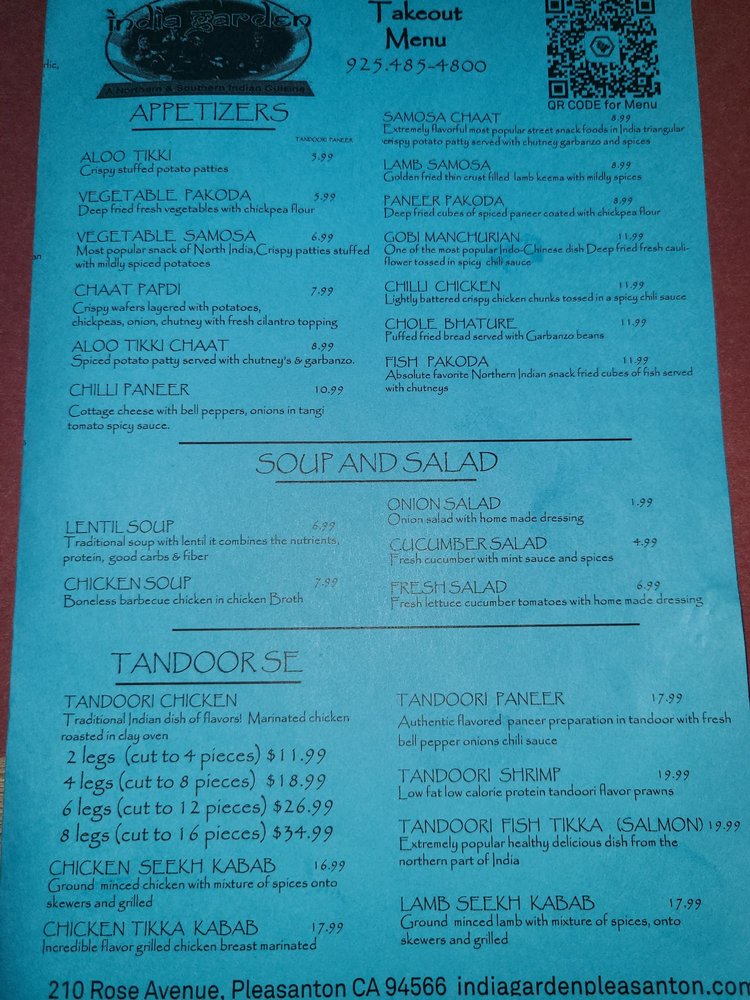 india garden
A Northern & Southern Indian Cuisine
Takeout
Menu
925.485-4800
QR CODE for Menu
APPETIZERS
TANDOORI PANEER
ALOO TIKKI 5.99
Crispy stuffed potato patties
VEGETABLE PAKODA 5.99
Deep fried fresh vegetables with chickpea flour
VEGETABLE SAMOSA 6.99
Most popular snack of North India,Crispy patties stuffed
with mildly spiced potatoes
CHAAT PAPDI 7.99
Crispy wafers layered with potatoes,
chickpeas, onion, chutney with fresh cilantro topping
ALOO TIKKI CHAAT 8.99
Spiced potato patty served with chutney's & garbanzo.
CHILLI PANEER 10.99
Cottage cheese with bell peppers, onions in tangi
tomato spicy sauce.
SAMOSA CHAAT 8.99
Extremely flavorful most popular street snack foods in India triangular
crispy potato patty served with chutney garbanzo and spices
LAMB SAMOSA 8.99
Golden fried thin crust filled lamb keema with mildly spices
PANEER PAKODA 8.99
Deep fried cubes of spiced paneer coated with chickpea flour
GOBI MANCHURIAN 11.99
One of the most popular Indo-Chinese dish Deep fried fresh cauli-
flower tossed in spicy chili sauce
CHILLI CHICKEN 11.99
Lightly battered crispy chicken chunks tossed in a spicy chili sauce
CHOLE BHATURE 11.99
Puffed fried bread served with Garbanzo beans
FISH PAKODA 11.99
Absolute favorite Northern Indian snack fried cubes of fish served
with chutneys
SOUP AND SALAD
LENTIL SOUP 6.99
Traditional soup with lentil it combines the nutrients,
protein, good carbs & fiber
CHICKEN SOUP 7.99
Boneless barbecue chicken in chicken Broth
ONION SALAD 1.99
Onion salad with home made dressing
CUCUMBER SALAD 4.99
Fresh cucumber with mint sauce and spices
FRESH SALAD 6.99
Fresh lettuce cucumber tomatoes with home made dressing
TANDOOR SE
TANDOORI CHICKEN
Traditional Indian dish of flavors! Marinated chicken
roasted in clay oven
2 legs (cut to 4 pieces) $11.99
4 legs (cut to 8 pieces) $18.99
6 legs (cut to 12 pieces) $26.99
8 legs (cut to 16 pieces) $34.99
CHICKEN SEEKH KABAB 16.99
Ground minced chicken with mixture of spices onto
skewers and grilled
CHICKEN TIKKA KABAB 17.99
Incredible flavor grilled chicken breast marinated
TANDOORI PANEER 17.99
Authentic flavored paneer preparation in tandoor with fresh
bell pepper onions chili sauce
TANDOORI SHRIMP 19.99
Low fat low calorie protein tandoori flavor prawns
TANDOORI FISH TIKKA (SALMON) 19.99
Extremely popular healthy delicious dish from the
northern part of India
LAMB SEEKH KABAB 17.99
Ground minced lamb with mixture of spices, onto
skewers and grilled
210 Rose Avenue, Pleasanton CA 94566 indiagardenpleasanton.com